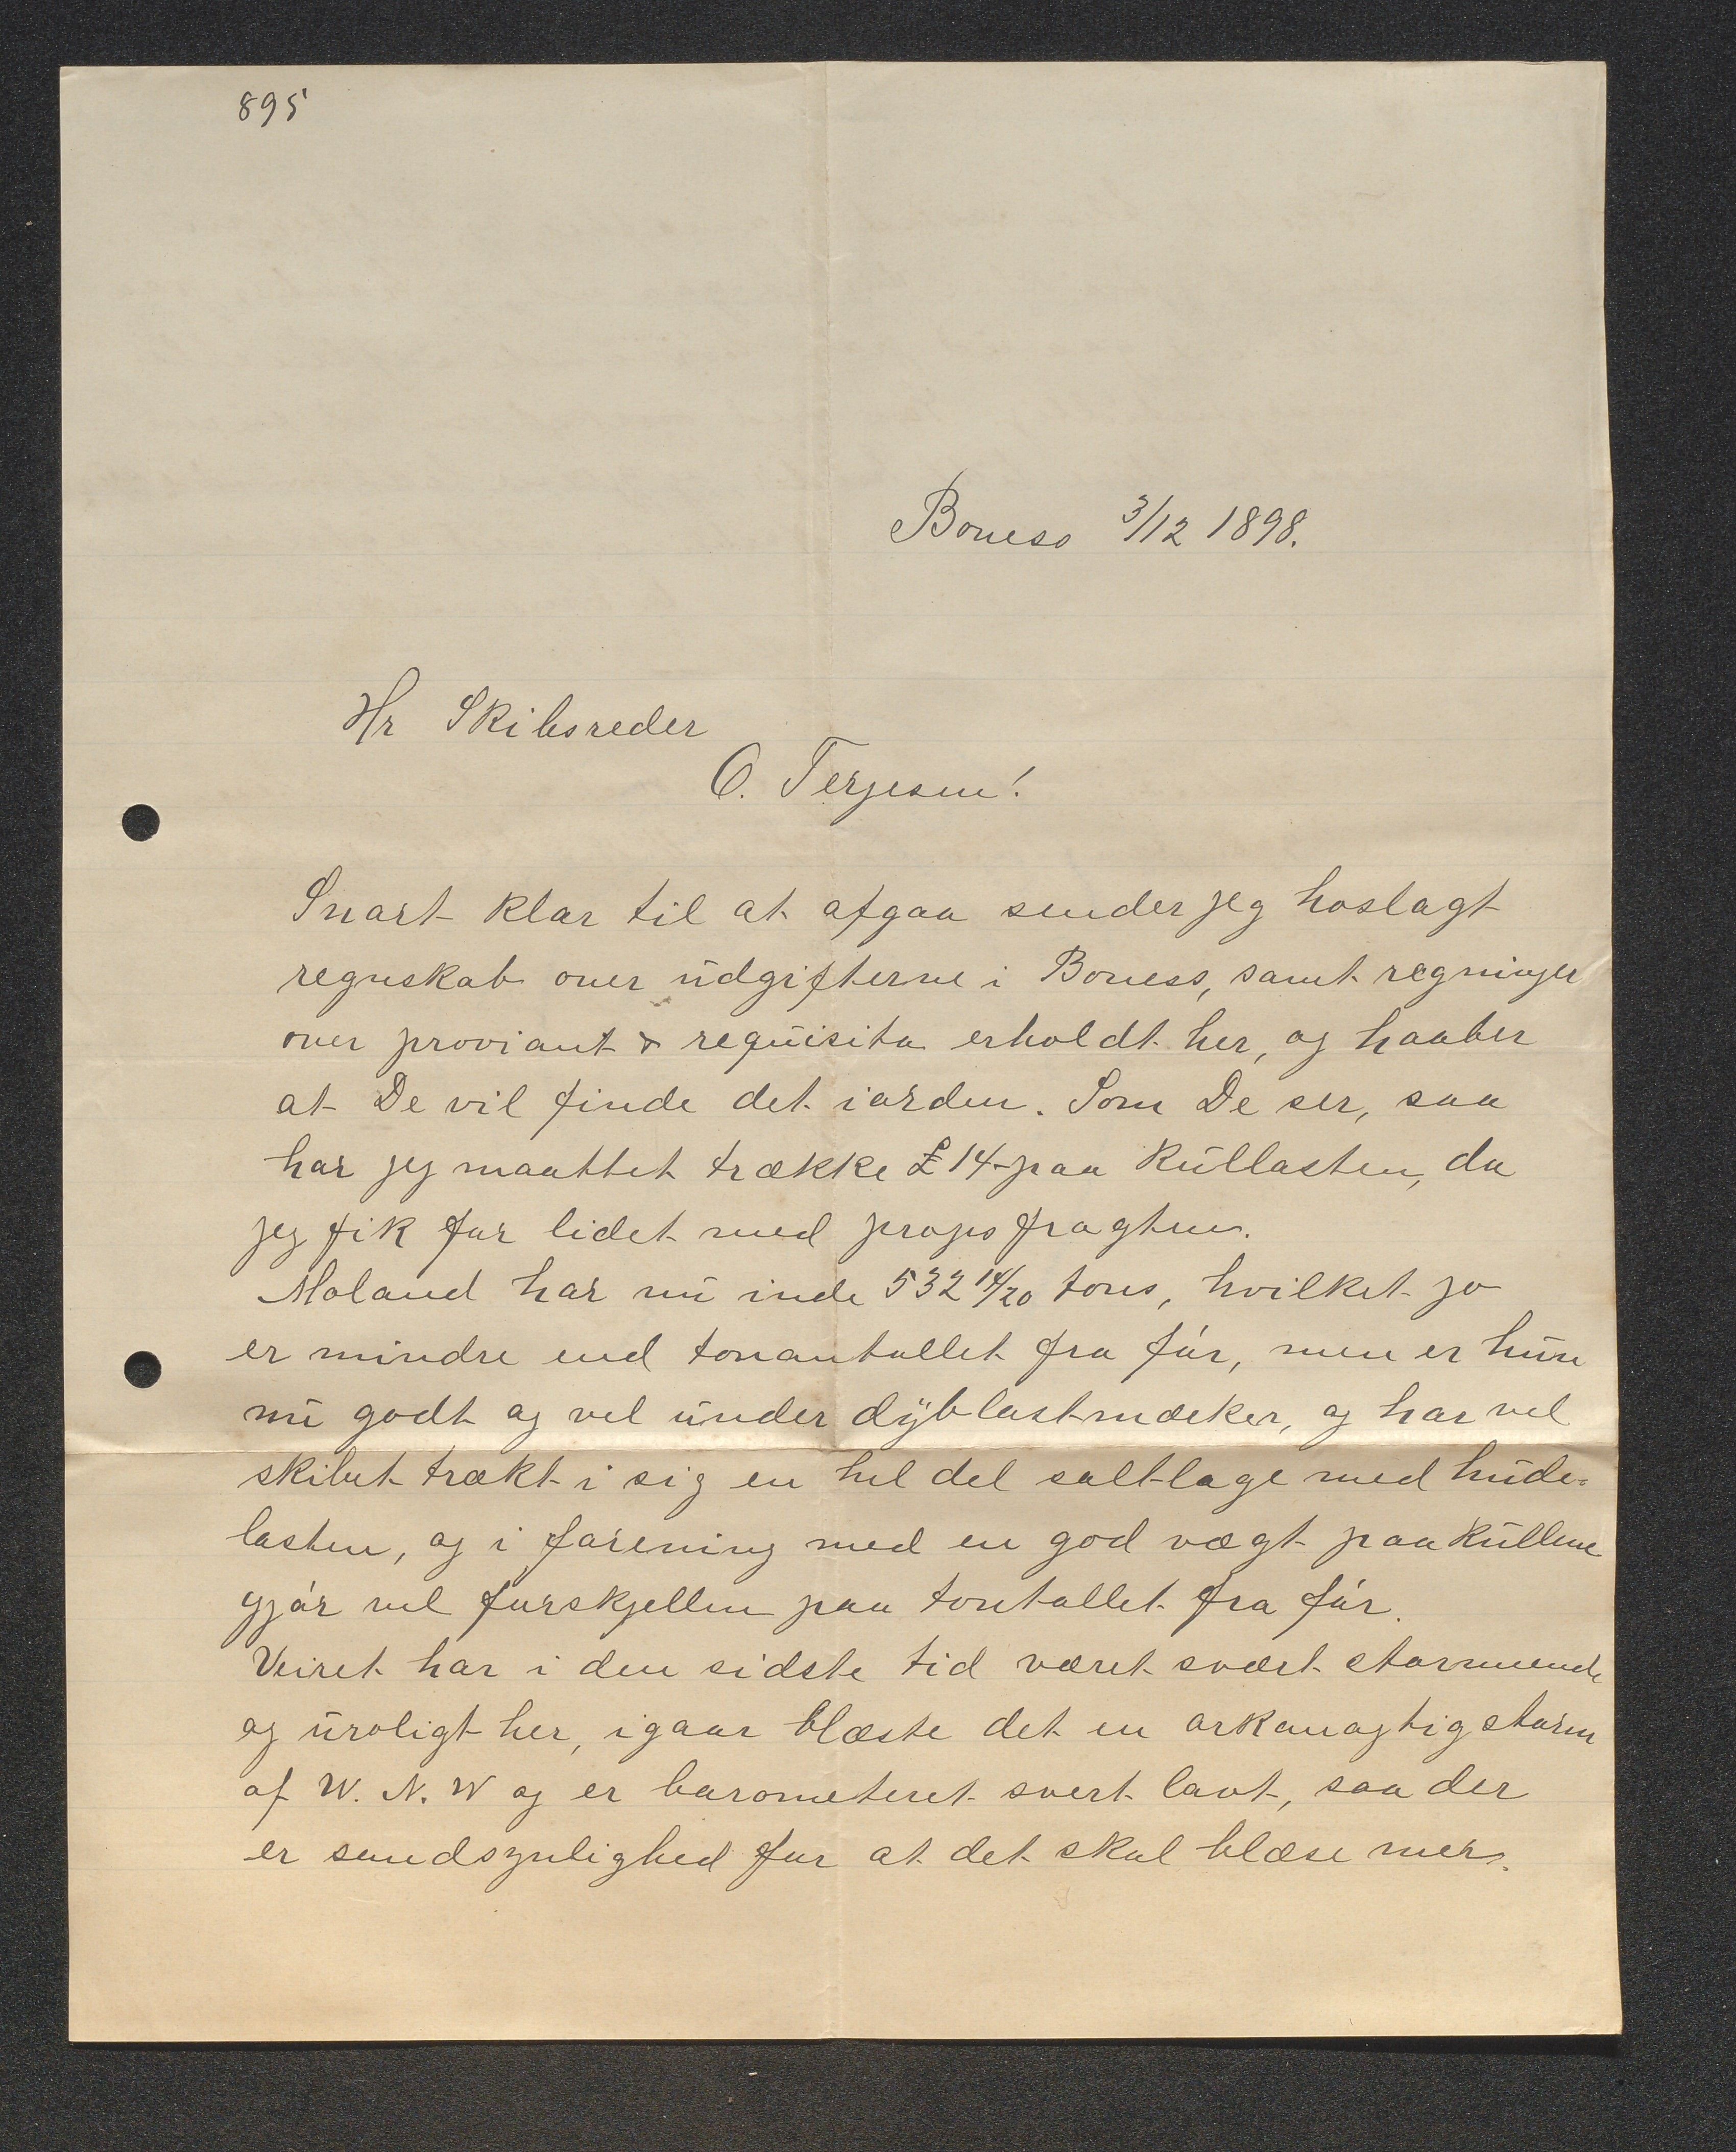 895
Boness 3/12 1898.
Hr Skibsreder
O. Terjesen!
Snart klar til at afgaa sender jeg hoslagt
regnskab over udgifterne i Boness, samt regninger
over proviant & requisita erholdt her, og haaber
at De vil finde det iorden. Som De ser, saa
har jeg maattet trække £ 14- paa kullasten, da
jeg fik for lidet med propsfragten.
Moland har nu inde 532 14/20 tons, hvilket jo
er mindre end tonantallet fra før, men er hun
nu godt og vel under dyblastmærker, og har vel
skibet trækt i sig en hel del saltlage med hude-
lasten, og i forening med en god vægt paa kullene
gjør vel forskjellen paa tontallet fra før.
Veiret har i den sidste tid været svært stormende
og uroligt her, igaar blæste det en orkanagtig storm
af W. N. W og er barometeret svert lavt, saa der
er sandsynlighed for at det skal blæse mer.